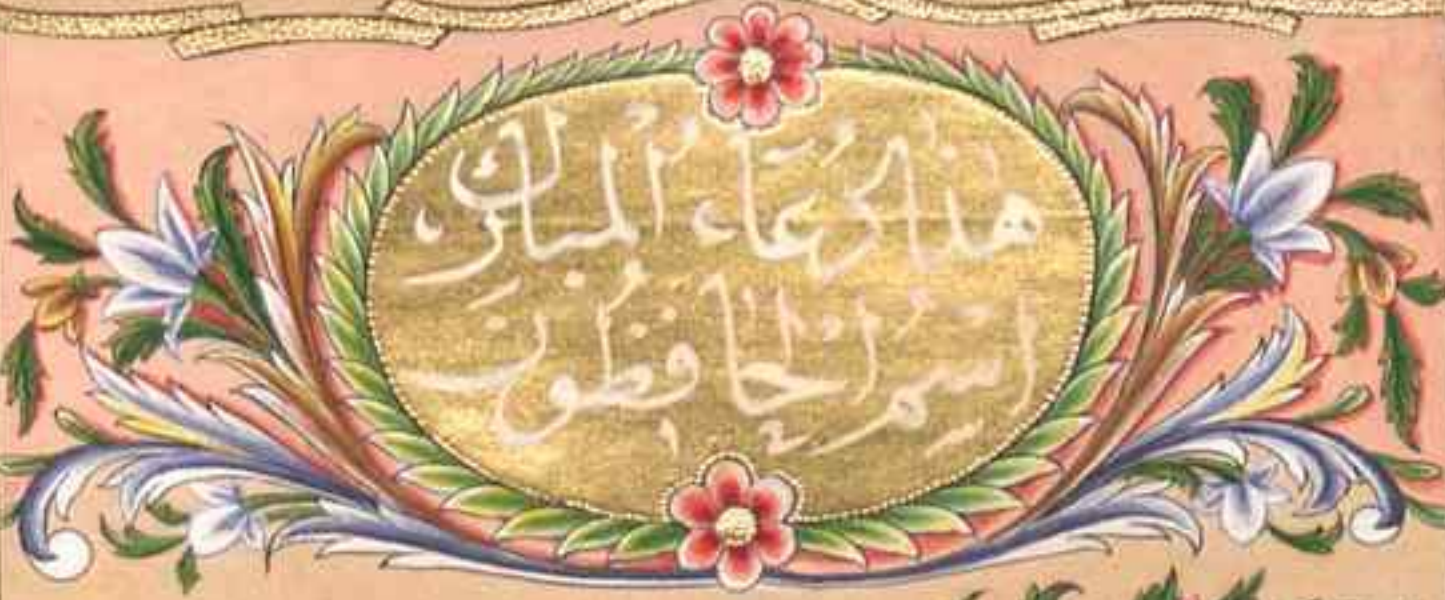 هذا الدعاء المبارك
اسم الحافظون